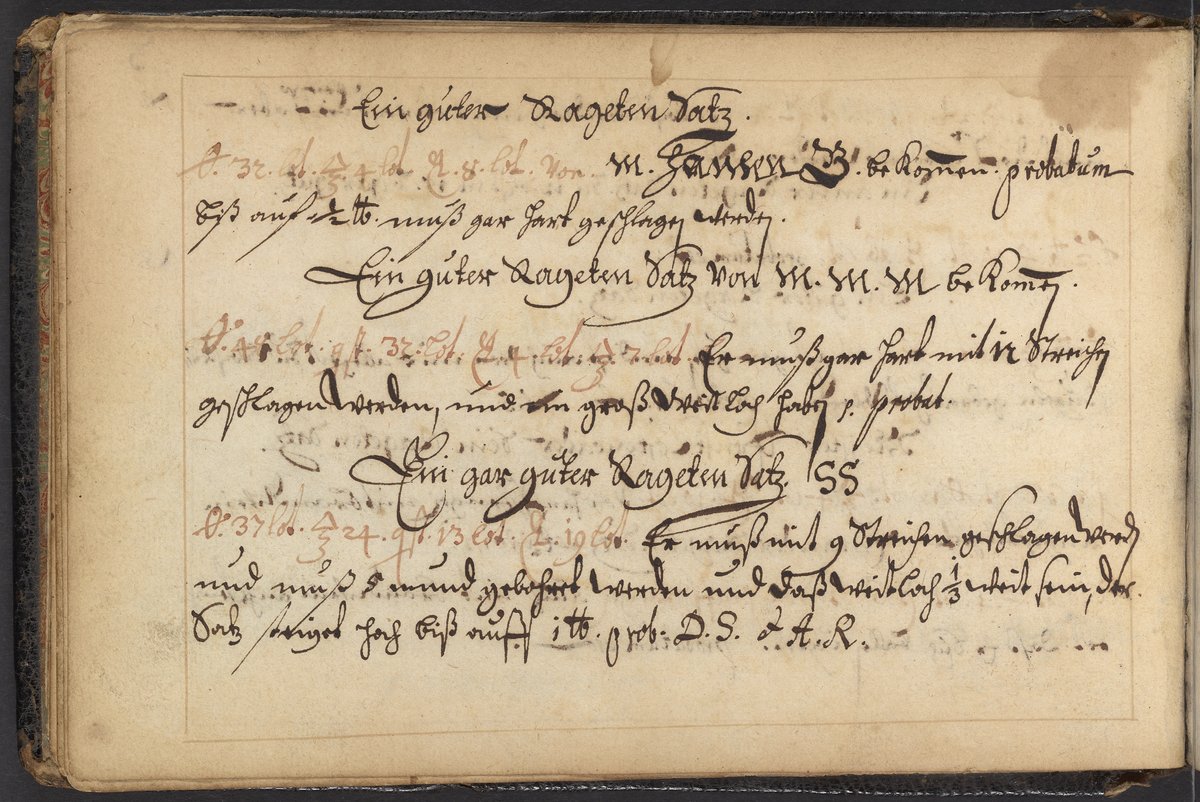 Ein guter Rageten Satz.
32 lot. 4 lot 8. lot. von. M. Hannsen B. bekomen. probatum
biß auf ½ ℔. muß gar hart geschlagen werden.
Ein guter Rageten Satz von M. M. M bekomen.
48 lot. 32. lot. 4. lot. 2. lot. Er muß gar hart mit 12 Streichen
geschlagen werden, und ein groß Weitloch haben p. probat
Ein gar guter Rageten Satz. SS
37 lot. 24. 13 lot. 19 lot. Er muß mit 9 Streichen geschlagen werden
und muß 5 mund gebohret werden und daß weitloch ⅓ weit sein, der
Satz steiget hoch biß auff 1 ℔. prob. D. S. A. R.